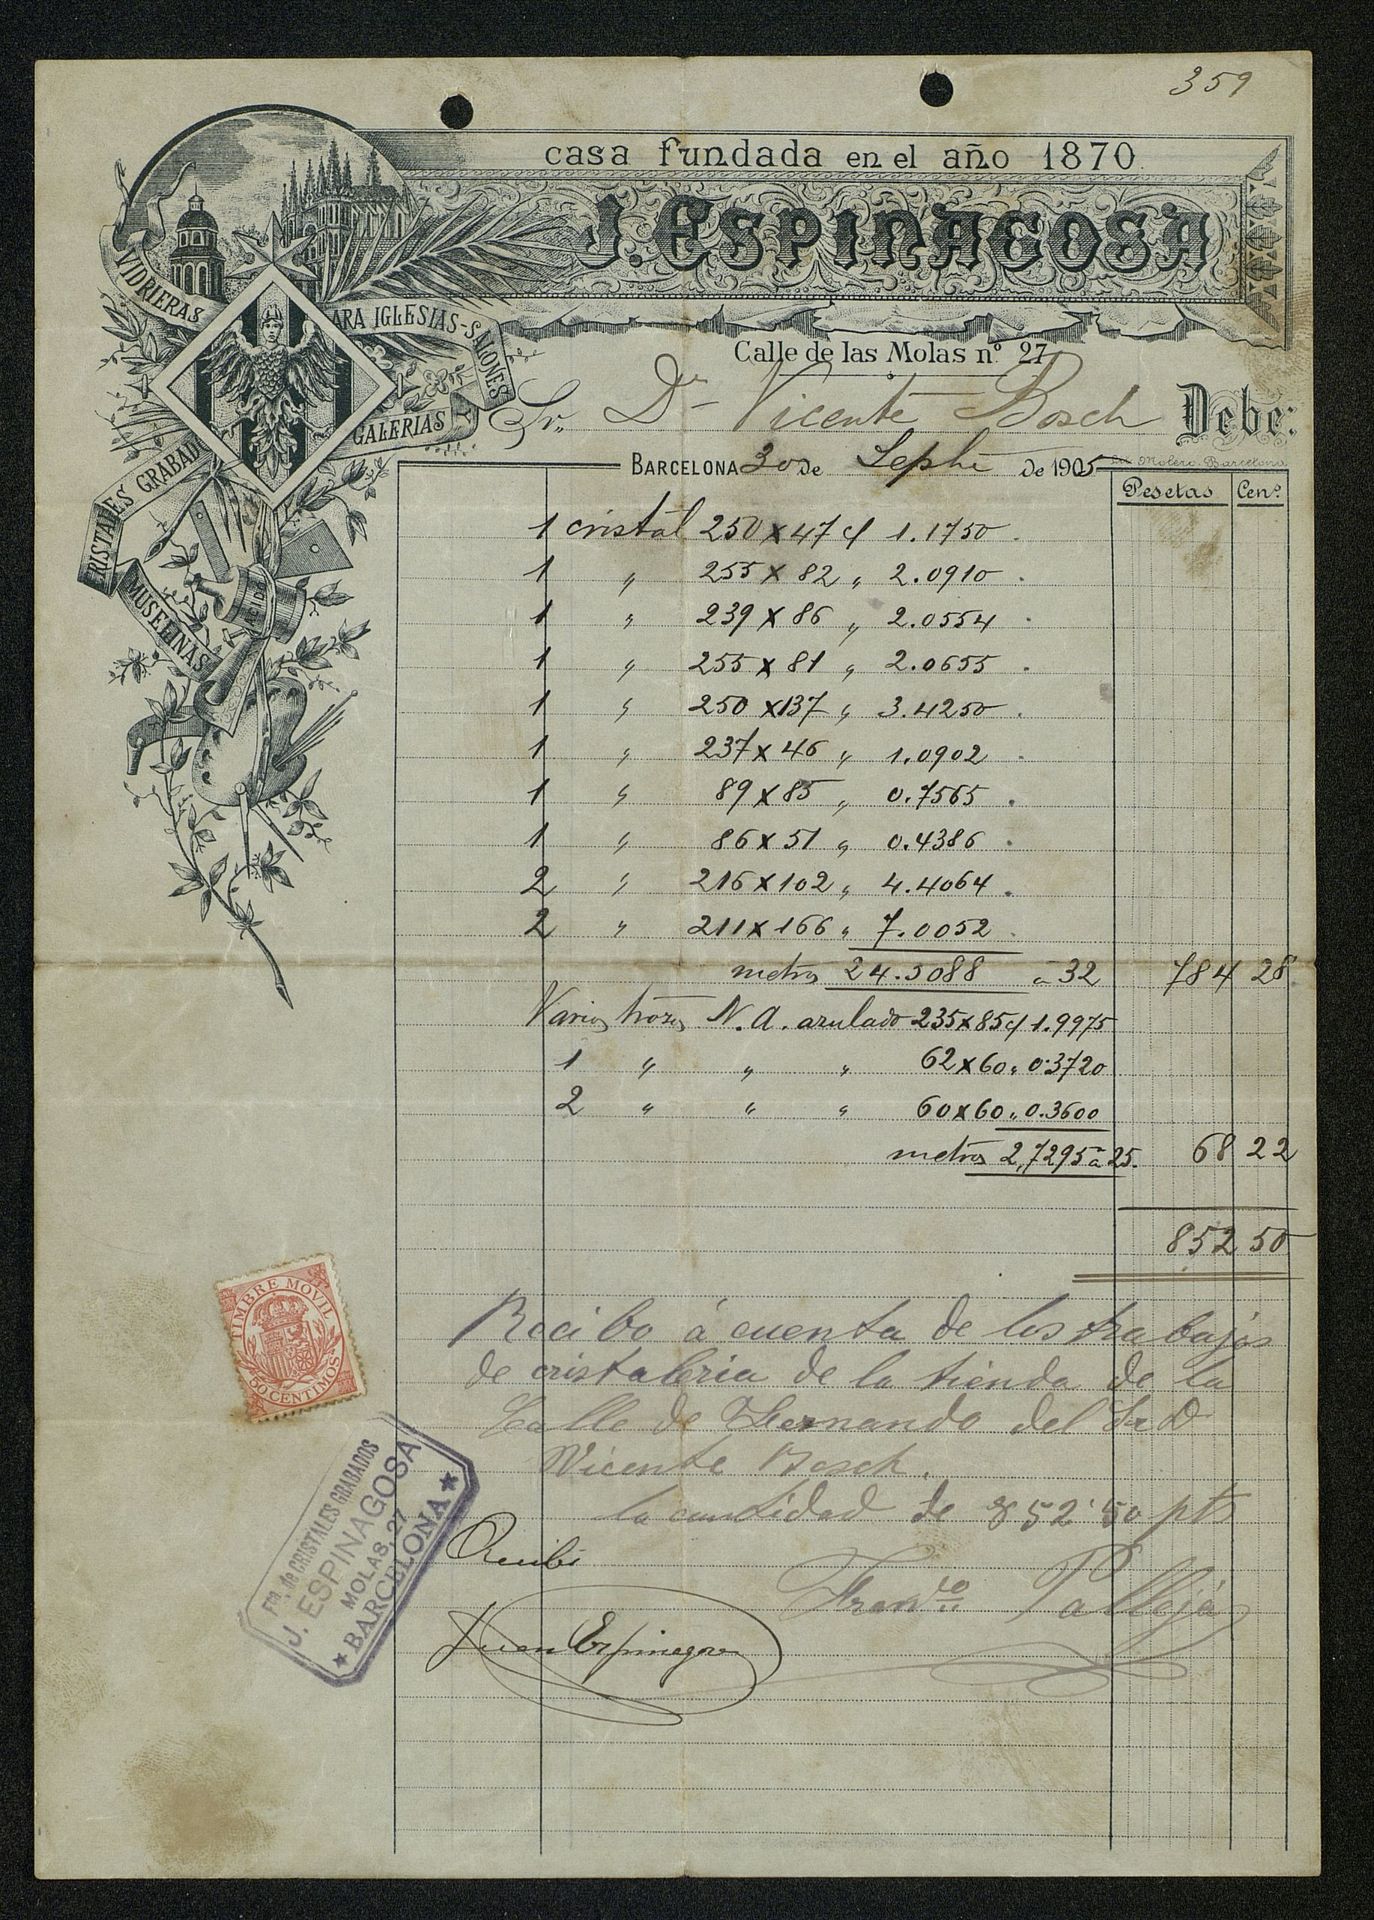 359
casa fundada en el año 1870
J. ESPINAGOSA
VIDRIERAS
ARA IGLESIAS-SALONES
Y
GALERIAS
RISTALES GRABAD
MUSELINAS
Calle de las Molas nº 27
Sr. Dn Vicente Bosch Debe:
BARCELONA 30 de Sepbre de 1905
Molero. Barcelona
Pesetas Cens.
1 cristal 250 x 47 1.1750
1 " 255 x 82 " 2.0910
1 " 239 x 86 " 2.0554
1 " 255 x 81 " 2.0655
1 " 250 x 137 " 3.4250
1 " 237 x 46 " 1.0902
1 " 89 x 85 " 0.7565
1 " 86 x 51 " 0.4386
2 " 216 x 102 " 4.4064
2 " 211 x 166 " 7.0052
metros 24.5088 a 32 784 28
Varios trozos N. A. azulado 235 x 85 1.9975
1 " " " 62 x 60 " 0.3720
2 " " " 60 x 60 " 0.3600
metros 2,7295 a 25. 68 22
852 50
TIMBRE MOVIL
50 CENTIMOS
Recibo á cuenta de los trabajos
de cristaleria de la tienda de la
Calle de Fernando del Sr D
Vicente Bosch.
la cantidad de 852'50 pts
Recibi
Franco Pallejá
Juan Espinagosa
Fca. de CRISTALES GRABADOS
J. ESPINAGOSA
MOLAS, 27
★ BARCELONA ★